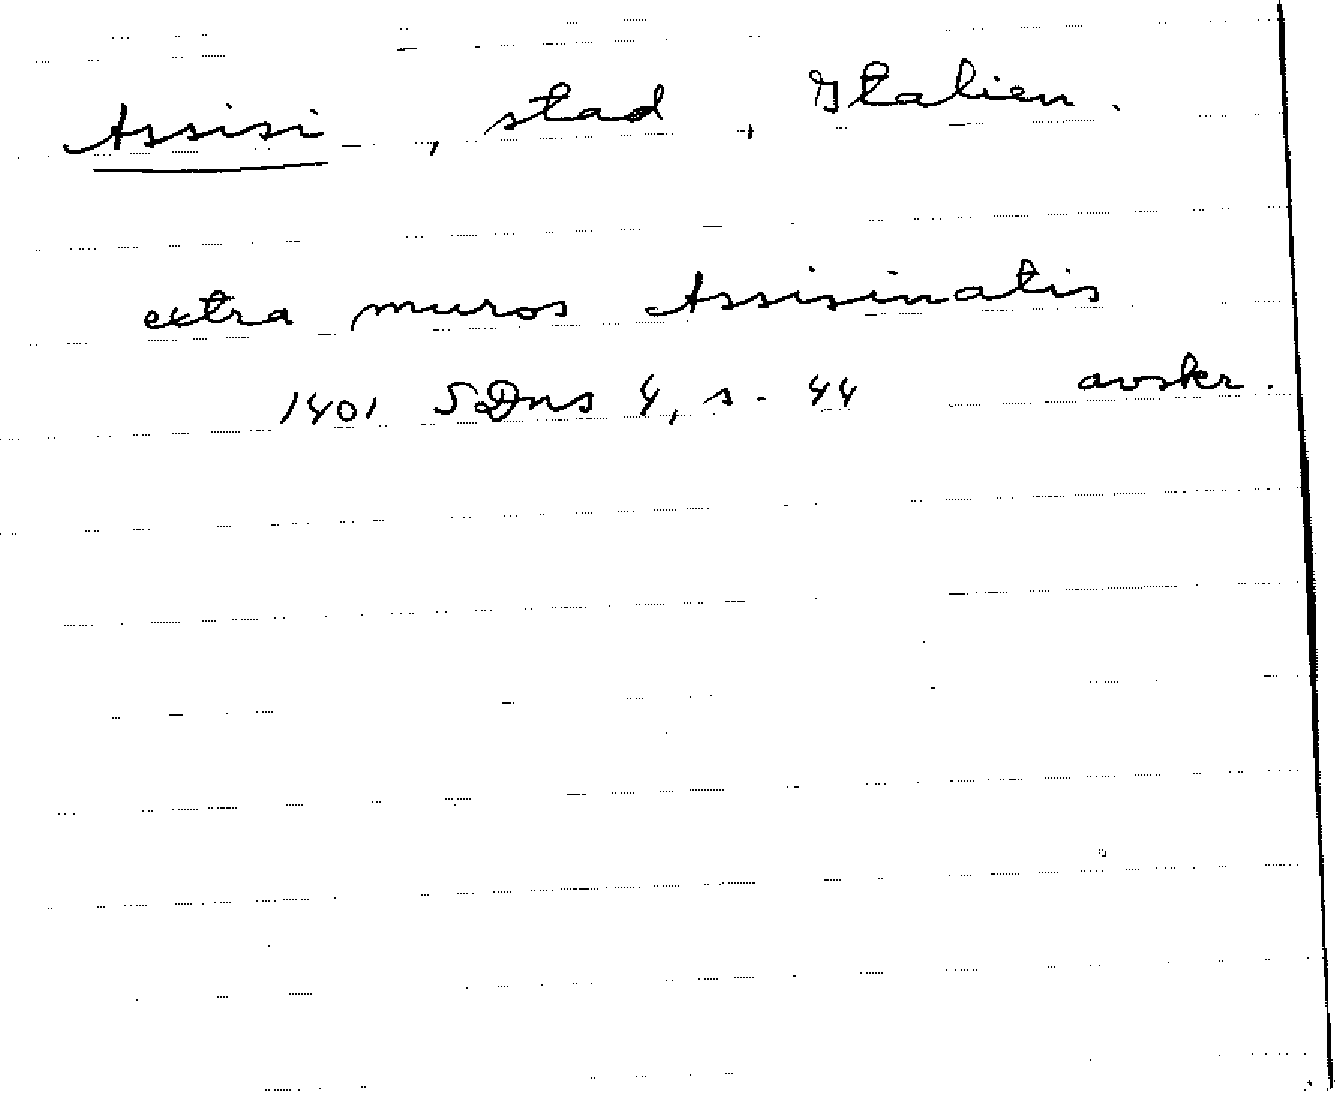 Assisi, stad, Italien.
extra muros Assisinatis
1401 SDns 4, s. 44 avskr.